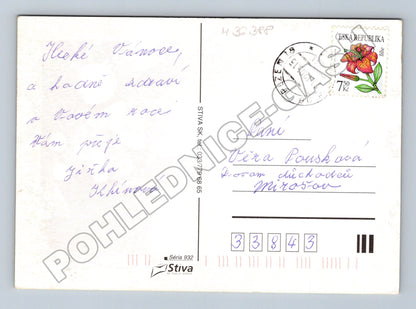 Hezké Vánoce,
a hodně zdraví
v Novém roce
Vám přeje
Jiřka
432388
ČESKÁ REPUBLIKA
7 Kč
PLZEŇ 1
STIVA SK, tel.
paní
Věra Pousková
Domov důchodců
Mirošov
33843
Série 932
Stiva
POHLEDNICE-CASH